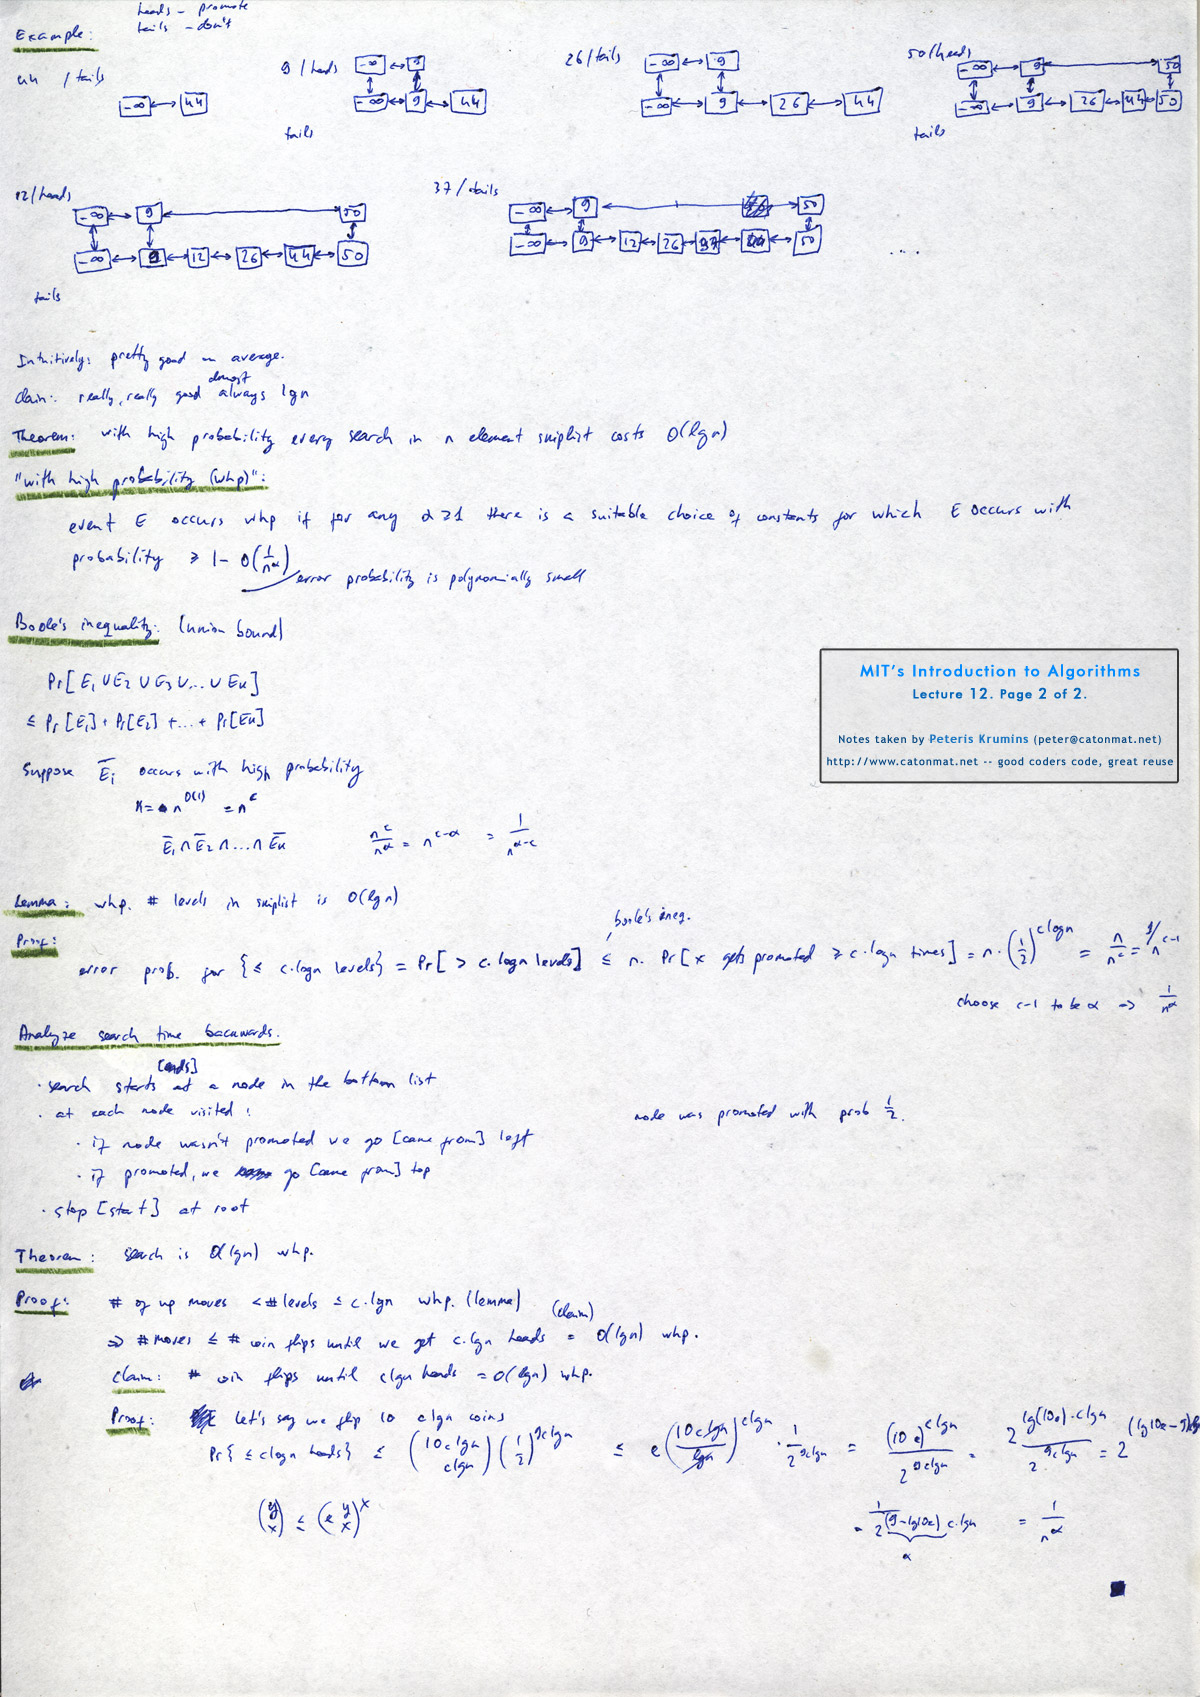 heads - promote
tails - don't
Example:
44 / tails
-∞ 44
9 / heads
-∞ 9
-∞ 9 44
tails
26 / tails
-∞ 9
-∞ 9 26 44
50 / heads
-∞ 9 50
-∞ 9 26 44 50
tails
12 / heads
-∞ 9 50
-∞ 9 12 26 44 50
tails
37 / tails
-∞ 9 50
-∞ 9 12 26 37 44 50
....
Intuitively: pretty good on average.
Claim: really, really good almost always lgn
Theorem: with high probability every search in n element skiplist costs O(lgn)
"with high probability (whp)":
event E occurs whp if for any α ≥ 1 there is a suitable choice of constants for which E occurs with
probability ≥ 1 - O(1/n^α)
error probability is polynomially small
Boole's inequality: (union bound)
Pr[E1 ∪ E2 ∪ E3 ∪ ... ∪ Ek]
≤ Pr[E1] + Pr[E2] + ... + Pr[Ek]
MIT's Introduction to Algorithms
Lecture 12. Page 2 of 2.
Notes taken by Peteris Krumins (peter@catonmat.net)
http://www.catonmat.net -- good coders code, great reuse
Suppose Ēi occurs with high probability
k = n^O(1) = n^c
Ē1 ∩ Ē2 ∩ ... ∩ Ēk n^c/n^α = n^(c-α) = 1/n^(α-c)
Lemma: whp. # levels in skiplist is O(lgn)
boole's ineq.
Proof:
error prob. for {≤ c·logn levels} = Pr[> c·logn levels] ≤ n·Pr[x gets promoted ≥ c·logn times] = n·(1/2)^(c logn) = n/n^c = 1/n^(c-1)
choose c-1 to be α ⇒ 1/n^α
Analyze search time backwards.
[ends]
· search starts at a node in the bottom list
· at each node visited:
node was promoted with prob 1/2.
· if node wasn't promoted we go [came from] left
· if promoted, we go [came from] top
· stop [start] at root
Theorem: search is O(lgn) whp.
Proof: # of up moves < # levels ≤ c·lgn whp. (lemma)
(claim)
⇒ # moves ≤ # coin flips until we get c·lgn heads = O(lgn) whp.
Claim: # coin flips until clgn heads = O(lgn) whp.
Proof: let's say we flip 10 clgn coins
Pr{≤ clogn heads} ≤ (10clgn clgn)(1/2)^(9clgn) ≤ e(10clgn/lgn)^(clgn) · 1/2^(9clgn) = (10e)^(clgn)/2^(9clgn) = 2^(lg(10e)·clgn)/2^(9clgn) = 2^((lg10e-9)
(y x) ≤ (e y/x)^x
= 1/2^((9-lg10e)c·lgn) = 1/n^α
α